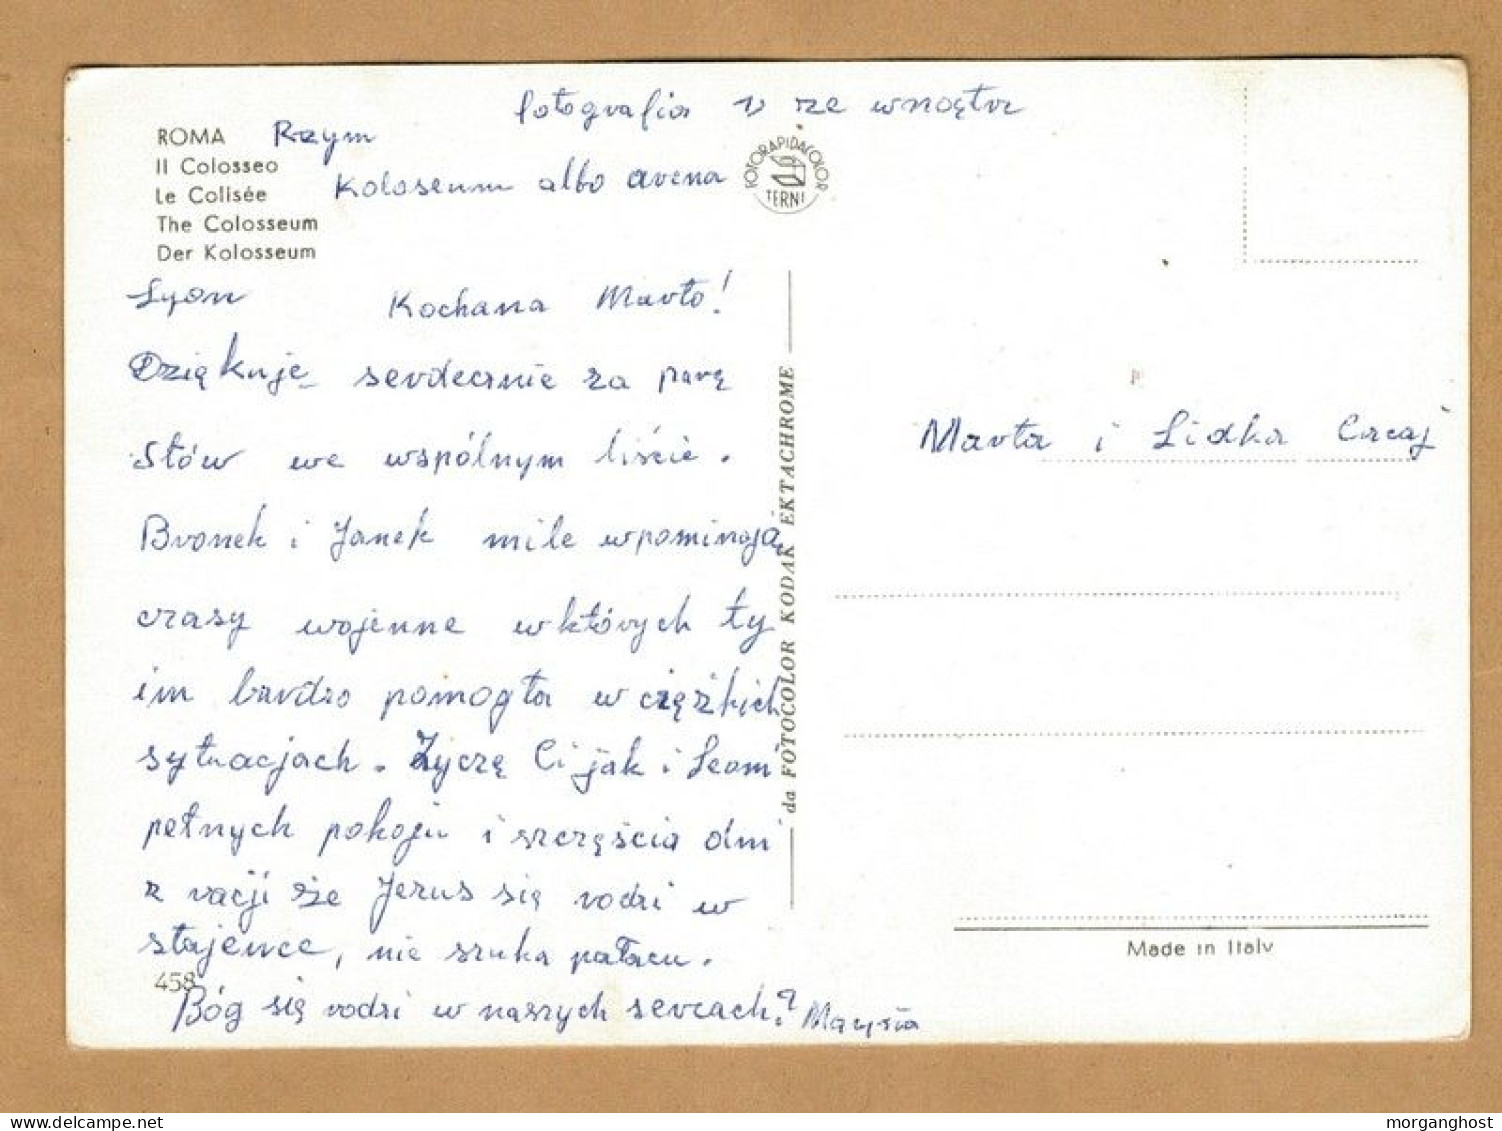 fotografia z ze wnętrz
ROMA Rzym
Il Colosseo
Koloseum albo arena
Le Colisée
The Colosseum
Der Kolosseum
FOTORAPIDACOLOR
TERNI
Lyon Kochana Marto!
Dziękuję serdecznie za parę
słów we wspólnym liście.
Bronek i Janek mile wpominają
czasy wojenne w których ty
im bardzo pomogła w ciężkich
sytuacjach. Życzę Ci jak i
pełnych pokoju i szczęścia dni
z racji że Jezus się rodzi w
stajence, nie szuka pałacu.
458
Bóg się rodzi w naszych sercach? Marysia
da FOTOCOLOR KODAK EKTACHROME
Marta i Lidka
Made in Italy
morganghost
delcampe.net